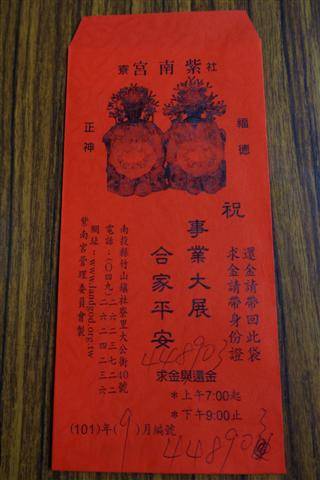 社寮紫南宮
福德
正神
祝
事業大展
合家平安
還金請帶回此袋
求金請帶身份證
南投縣竹山鎮社寮里大公街40號
電話：(〇四九)二六二三七二二
二六二四二三六
網址：www.landgod.org.tw
紫南宮管理委員會製
448903
求金與還金
＊上午7:00起
＊下午9:00止
(101)年(9)月編號
448903